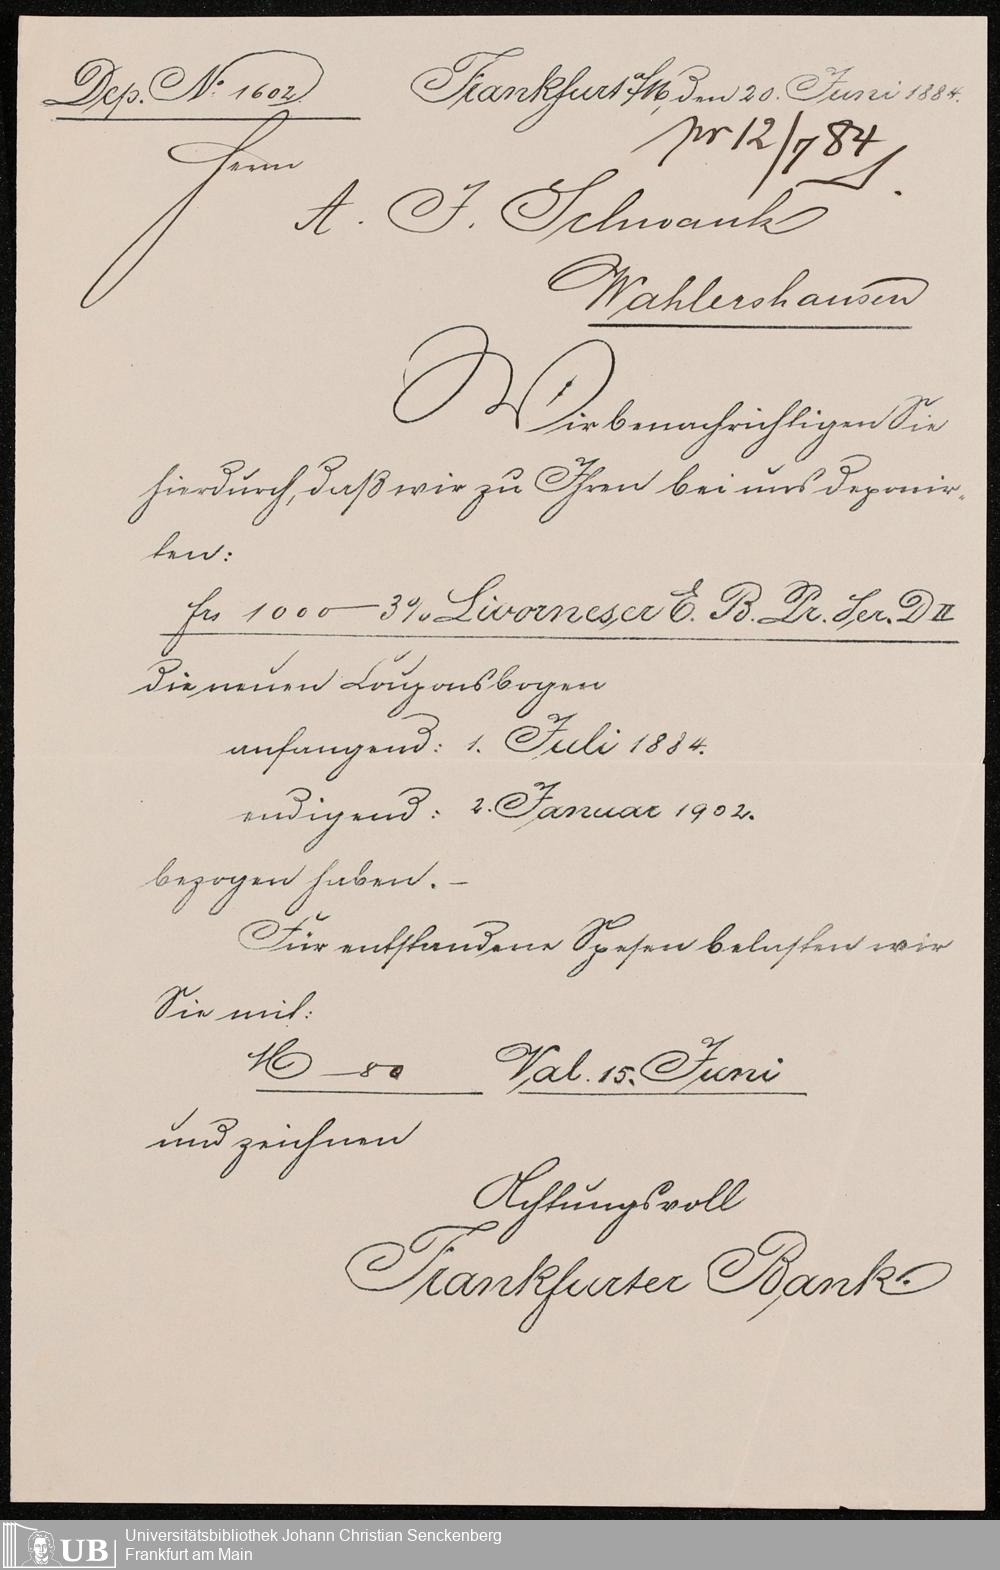 Dep. No. 1602.
Frankfurt a/M, den 20. Juni 1884.
pr 12/7 84
Herrn
A. F. Schwank
Wahlershausen
Wir benachrichtigen Sie
hierdurch, daß wir zu Ihren bei uns deponir-
ten:
frs 1000 — 3% Livorneser E. B. Pr. Ser. D II
die neuen Couponsbogen
anfangend: 1. Juli 1884.
endigend: 2. Januar 1902.
bezogen haben. —
Für entstandene Spesen belasten wir
Sie mit:
M — 80 Val. 15. Juni
und zeichnen
Achtungsvoll
Frankfurter Bank.
UB
Universitätsbibliothek Johann Christian Senckenberg
Frankfurt am Main